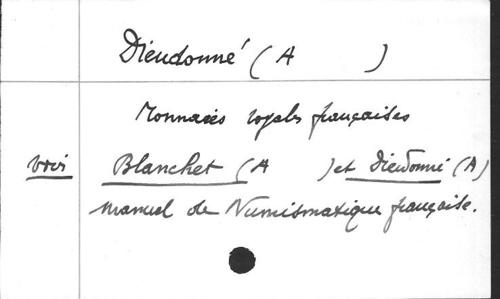 Dieudonné (A )
Monnaies royales françaises
voir Blanchet (A ) et Dieudonné (A)
Manuel de Numismatique française.